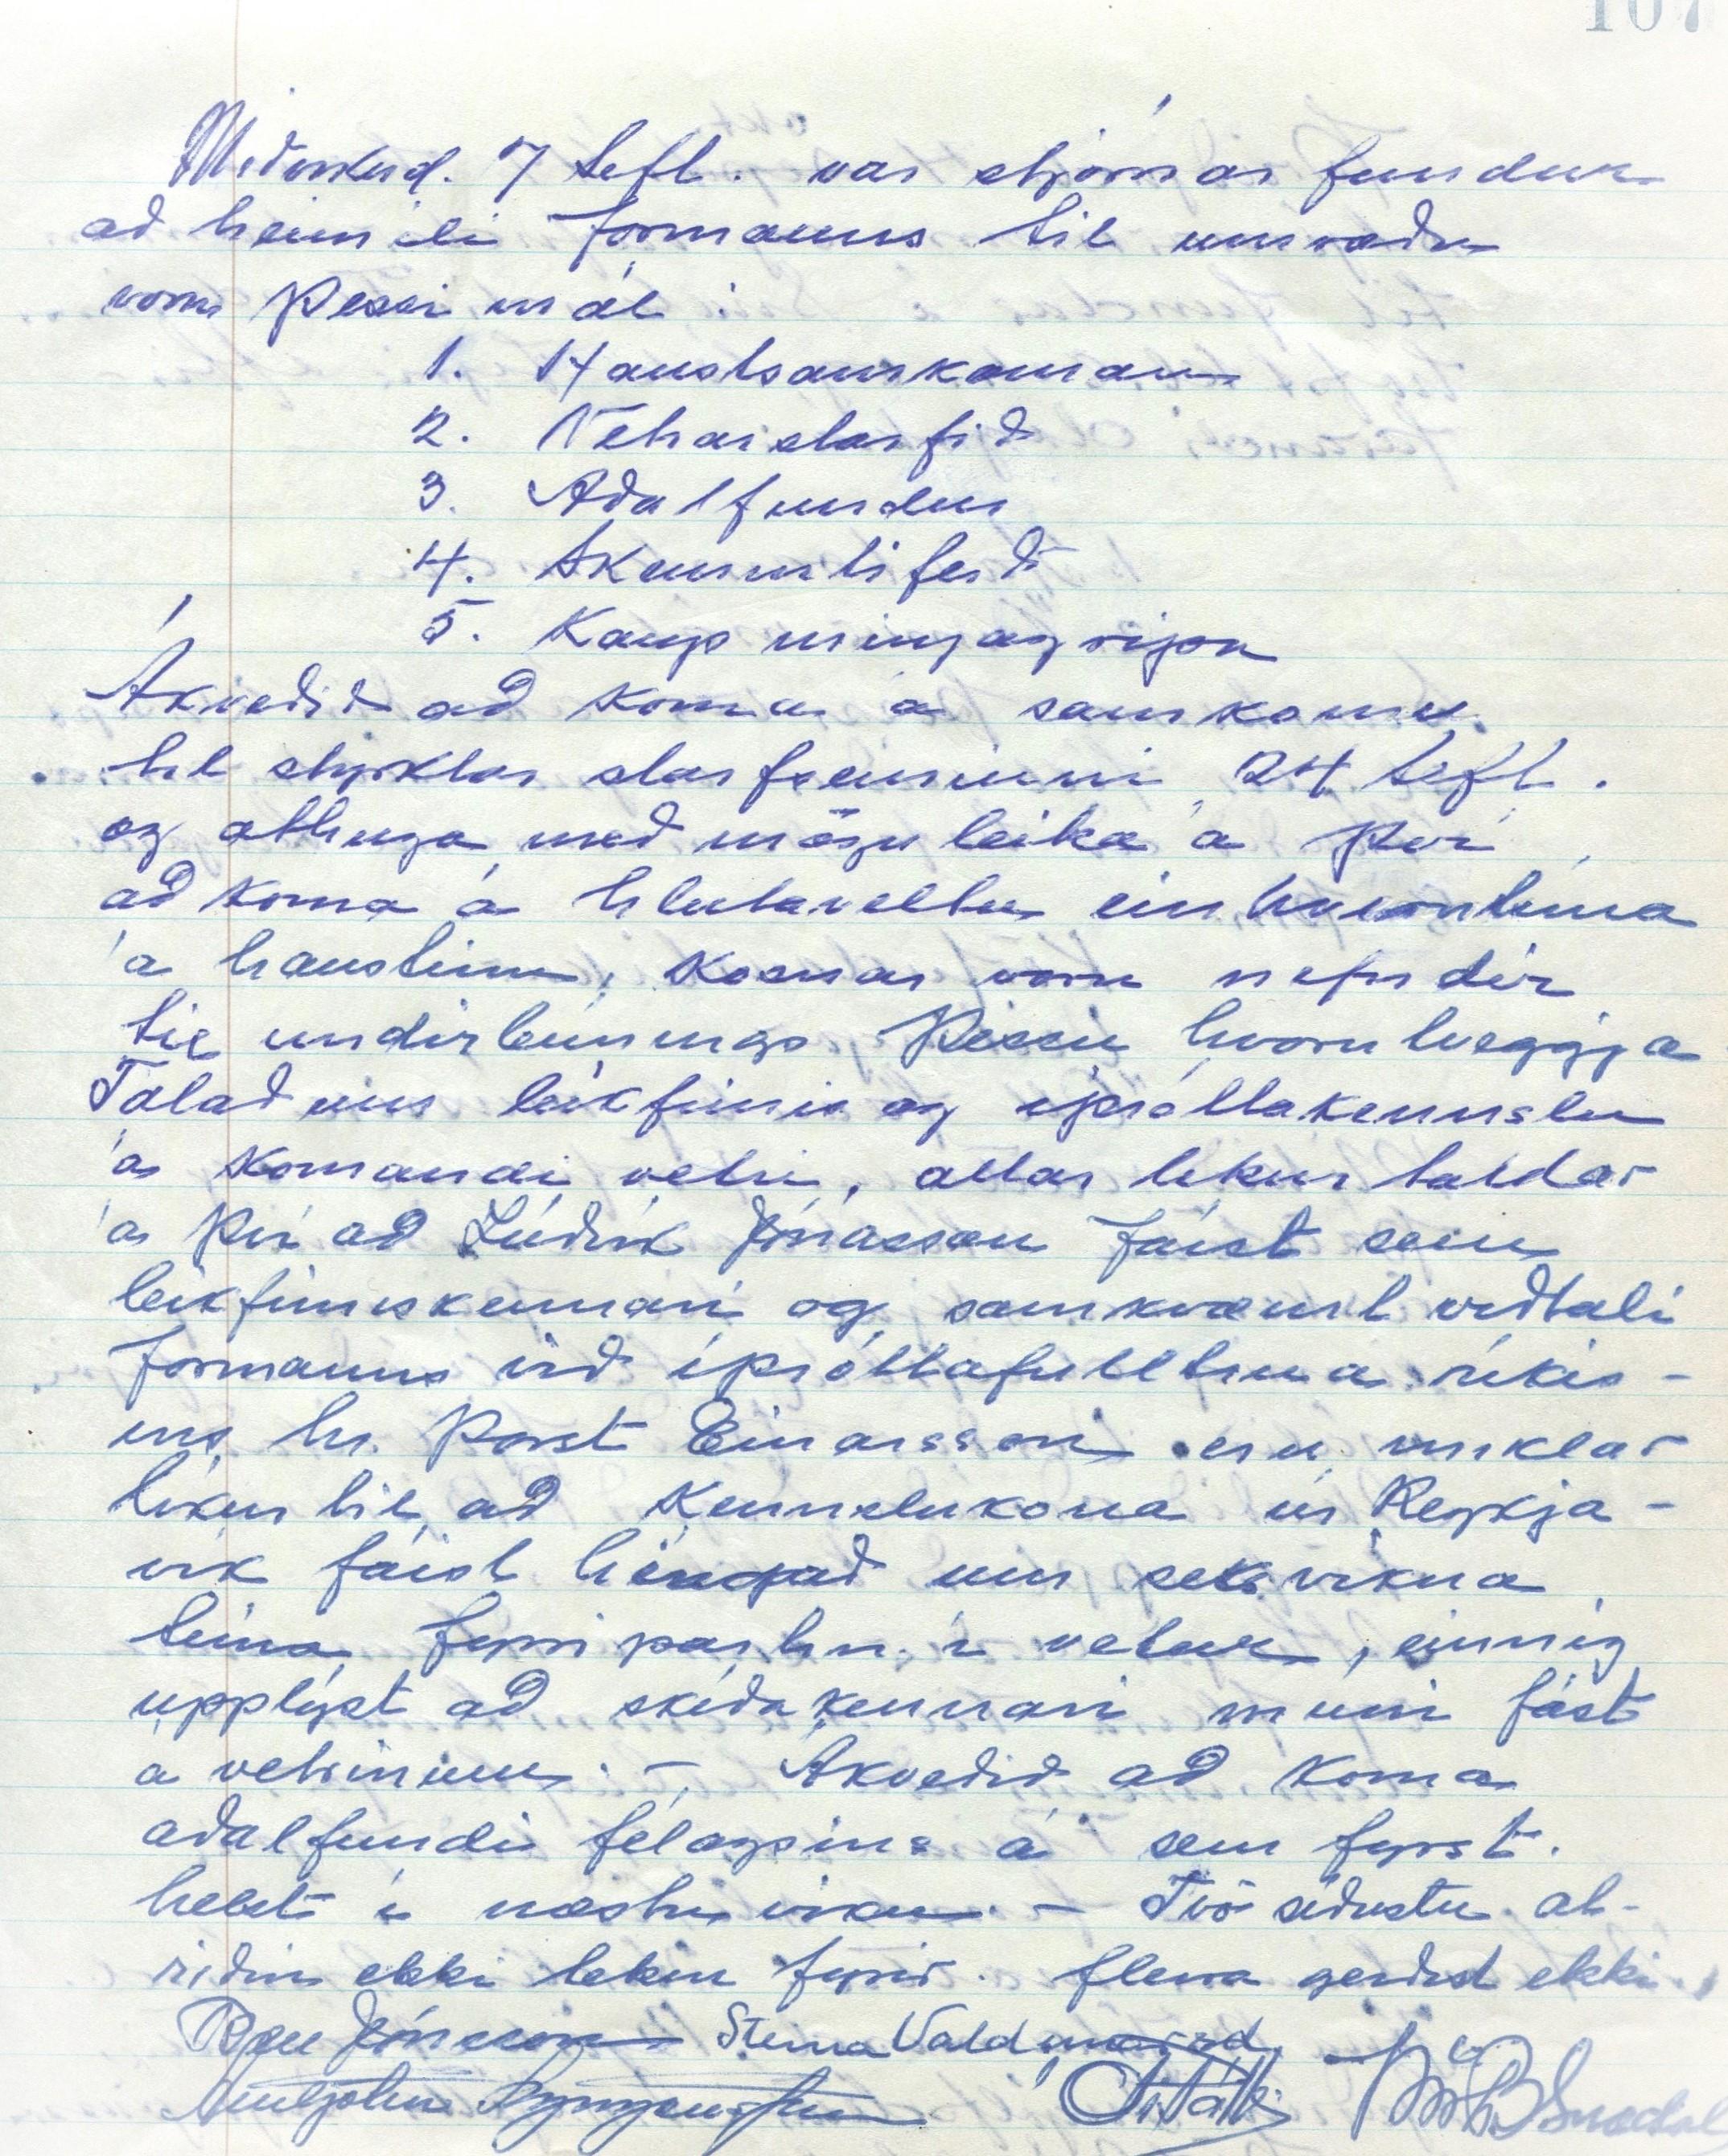 107
Miðvikud. 7 sept. var stjórnar fundur
að heimili formanns til umræðu
voru þessi mál:
1. Haustsamkoman
2. Vetrarstarfið
3. Aðalfundur
4. Skemmtiferð
5. Kaup
Ákveðið að koma á samkomu
til styrktar starfseminni 24 sept.
og athuga með möguleika á því
að koma á hlutaveltu einhverntíma
á haustinu, kosnar voru nefndir
til undirbúnings þessu hvorutveggja
Talað um leikfimis og íþróttakennslu
á komandi vetri, allar líkur taldar
á því að Lúðvík Jónasson fáist sem
leikfimiskennari og samkvæmt viðtali
formanns við íþróttafulltrúa ríkis-
ins hr. Þorst Einarsson eru miklar
líkur til að kennslukona úr Reykja-
vík fáist hingað um seks vikna
tíma fyrripartin í vetur, einnig
upplýst að skíðakennari muni fást
á vetrinum. - Ákveðið að koma
aðalfundi félagsins á sem fyrst.
helst í næstu viku. - Tvö síðustu at-
riðin ekki tekin fyrir. fleira gerðist ekki.
Jónsson Steina Valdimarsd.